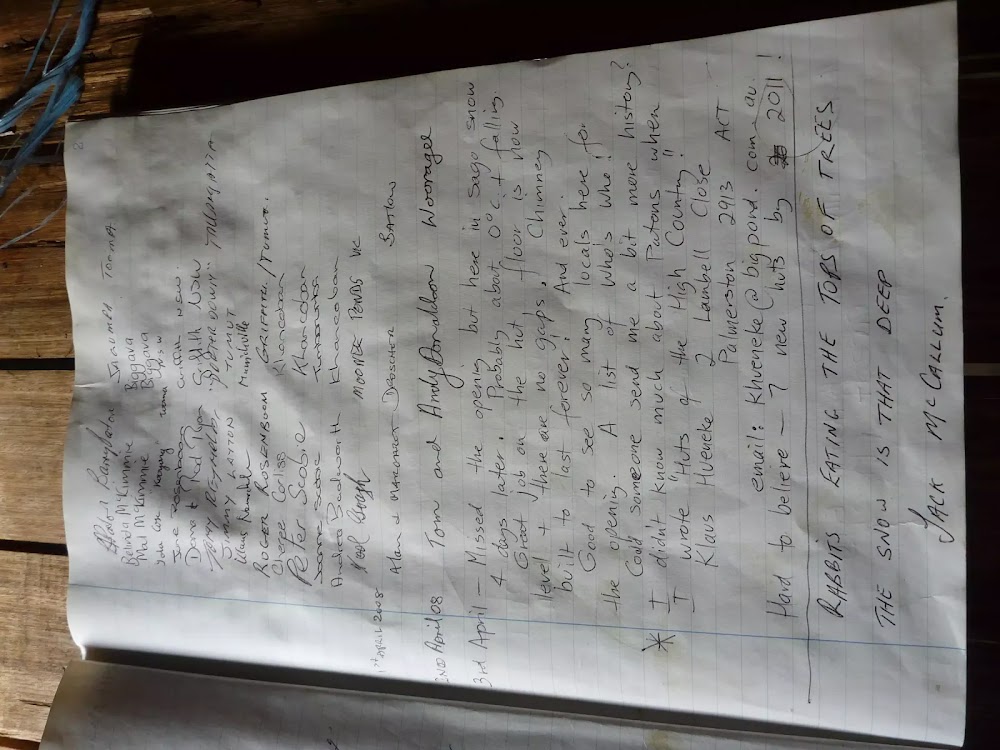 Jaumen Tooma
Belinda McKimmie Boggava
Phil McKimmie Boggava
June
Dona & Ted Ryan Griffith NSW
JIMMY TUMUT
Klaus
ROGER ROSENBOOM GRIFFITH/Tumut.
George Corliss Khancoban
Peter Scobie Khancoban
Andrea Beckworth Khancoban
1st APRIL 2008 Noel MOONEE PONDS VIC
Alan BATLOW
2ND April 08 Tom and Andy Donaldson Wooragee
3rd April – Missed the opening but here in sago snow
4 days later. Probably about 0°C & falling.
Great job on the hut – floor is now
level + there are no gaps, Chimney
built to last forever! And ever.
Good to see so many locals here for
the opening. A list of who's who!
Could someone send me a bit more history?
* I didn't know much about Patons when
I wrote "Huts of the High Country"
Klaus Hueneke 2 Lambell Close
Palmerston 2913 ACT
email: khueneke@bigpond.com.au
Hard to believe – 7 new huts by 2011!
RABBITS EATING THE TOPS OF TREES
THE SNOW IS THAT DEEP
JACK McCALLUM.